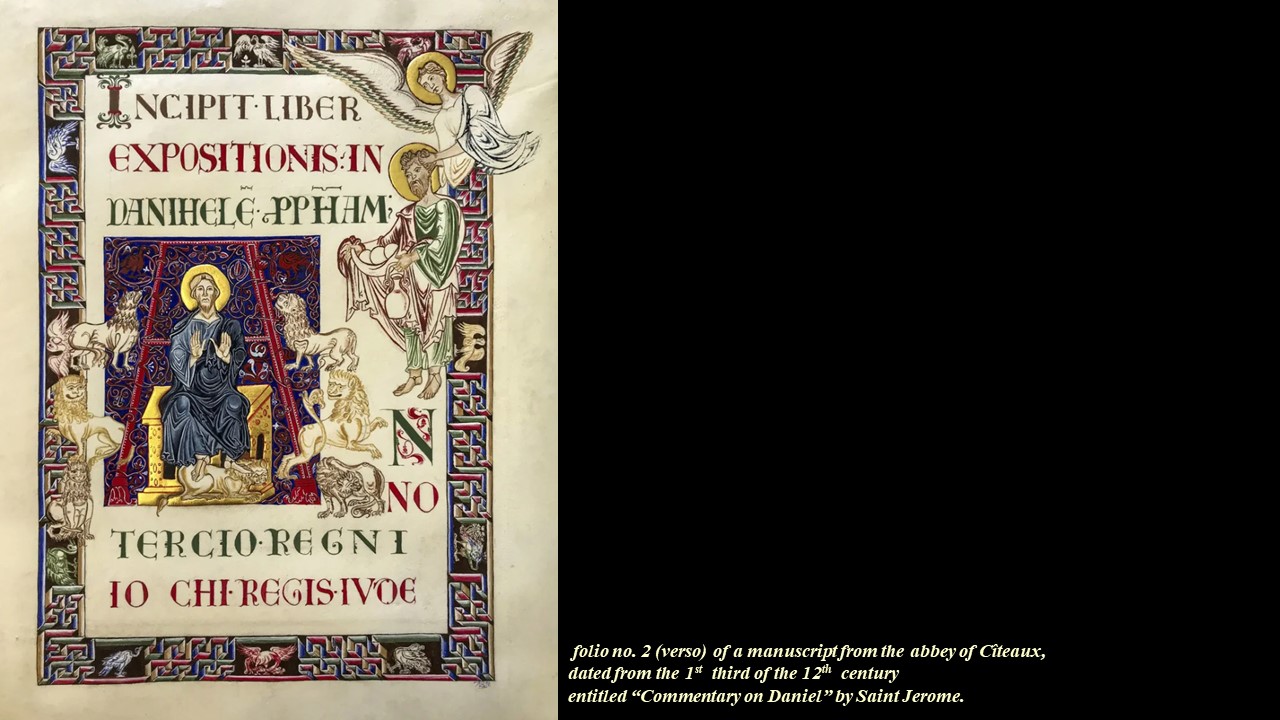 INCIPIT·LIBER
EXPOSITIONIS:IN
DANIHELĒ·PPHAM;
A
N
NO
TERCIO·REGNI
IO CHI·REGIS·IVDE
folio no. 2 (verso) of a manuscript from the abbey of Cîteaux,
dated from the 1st third of the 12th century
entitled “Commentary on Daniel” by Saint Jerome.